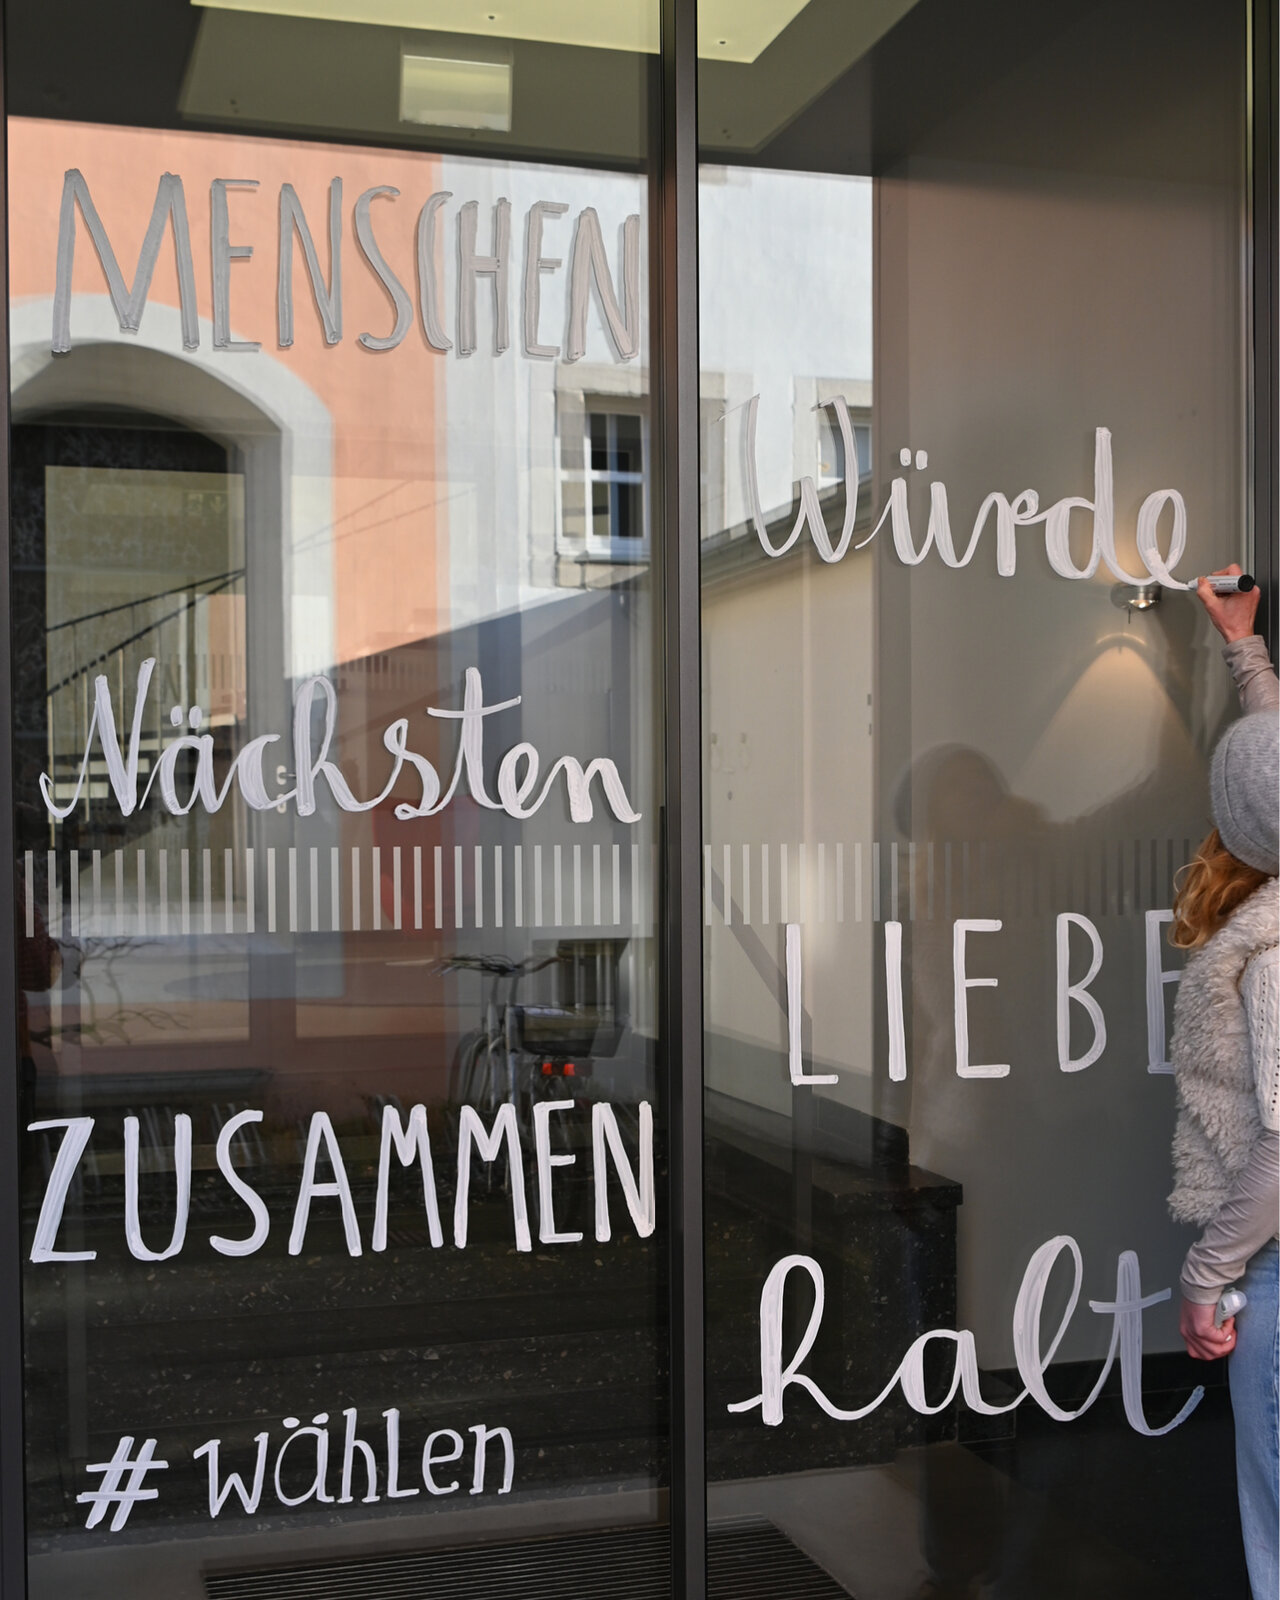 MENSCHEN
Würde
Nächsten
LIEBE
ZUSAMMEN
halt
#wählen